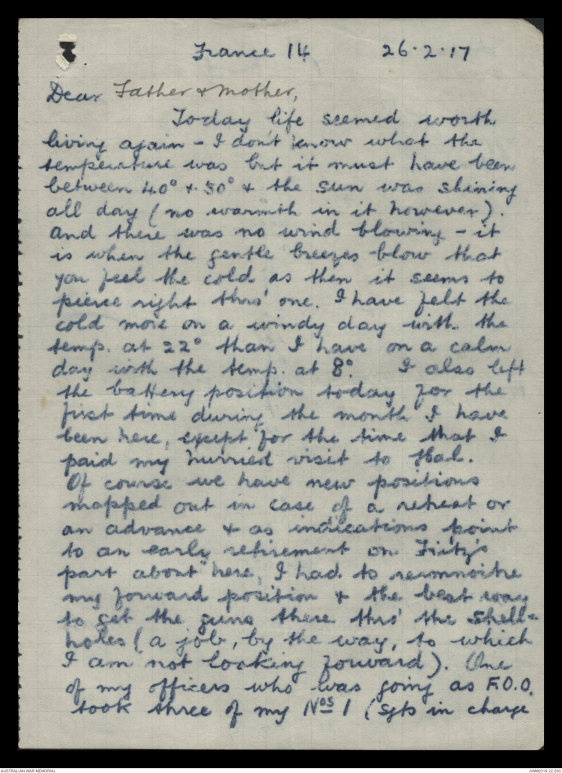 France 14 26.2.17
Dear Father & Mother,
Today life seemed worth
living again - I don't know what the
temperature was but it must have been
between 40° & 50° & the sun was shining
all day (no warmth in it however).
and there was no wind blowing - it
is when the gentle breezes blow that
you feel the cold as then it seems to
pierce right thro' one. I have felt the
cold more on a windy day with the
temp. at 22° than I have on a calm
day with the temp. at 8°. I also left
the battery position today for the
first time during the month I have
been here, except for the time that I
paid my hurried visit to Hal.
Of course we have new positions
mapped out in case of a retreat or
an advance & as indications point
to an early retirement on Fritz's
part about here, I had to reconnoitre
my forward position & the best way
to get the guns there thro' the shell-
holes (a job, by the way, to which
I am not looking forward). One
of my officers who was going as F.O.O.
took three of my Nos 1 (sgts in charge
AUSTRALIAN WAR MEMORIAL